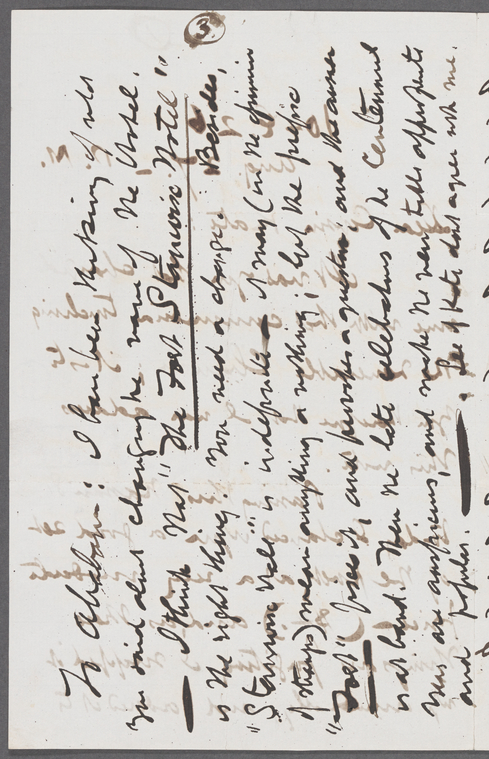 ③
To Ahabaham: I have been thinking of what
you said about changing the name of the Hotel.
— I think that "The Fort Stanwix Hotel"
is the right thing. You need a change. Besides,
"Stanwix Hotel" is indefinite — it may (in the opinion
of things) mean anything or nothing; but the prefix
"Fort" fixes it, and provokes a question, and the answer
is at hand. Then the late celebrations of the Centennial
were so auspicious, and makes the name both appropriate
and popular. — See if Kate don't agree with me.